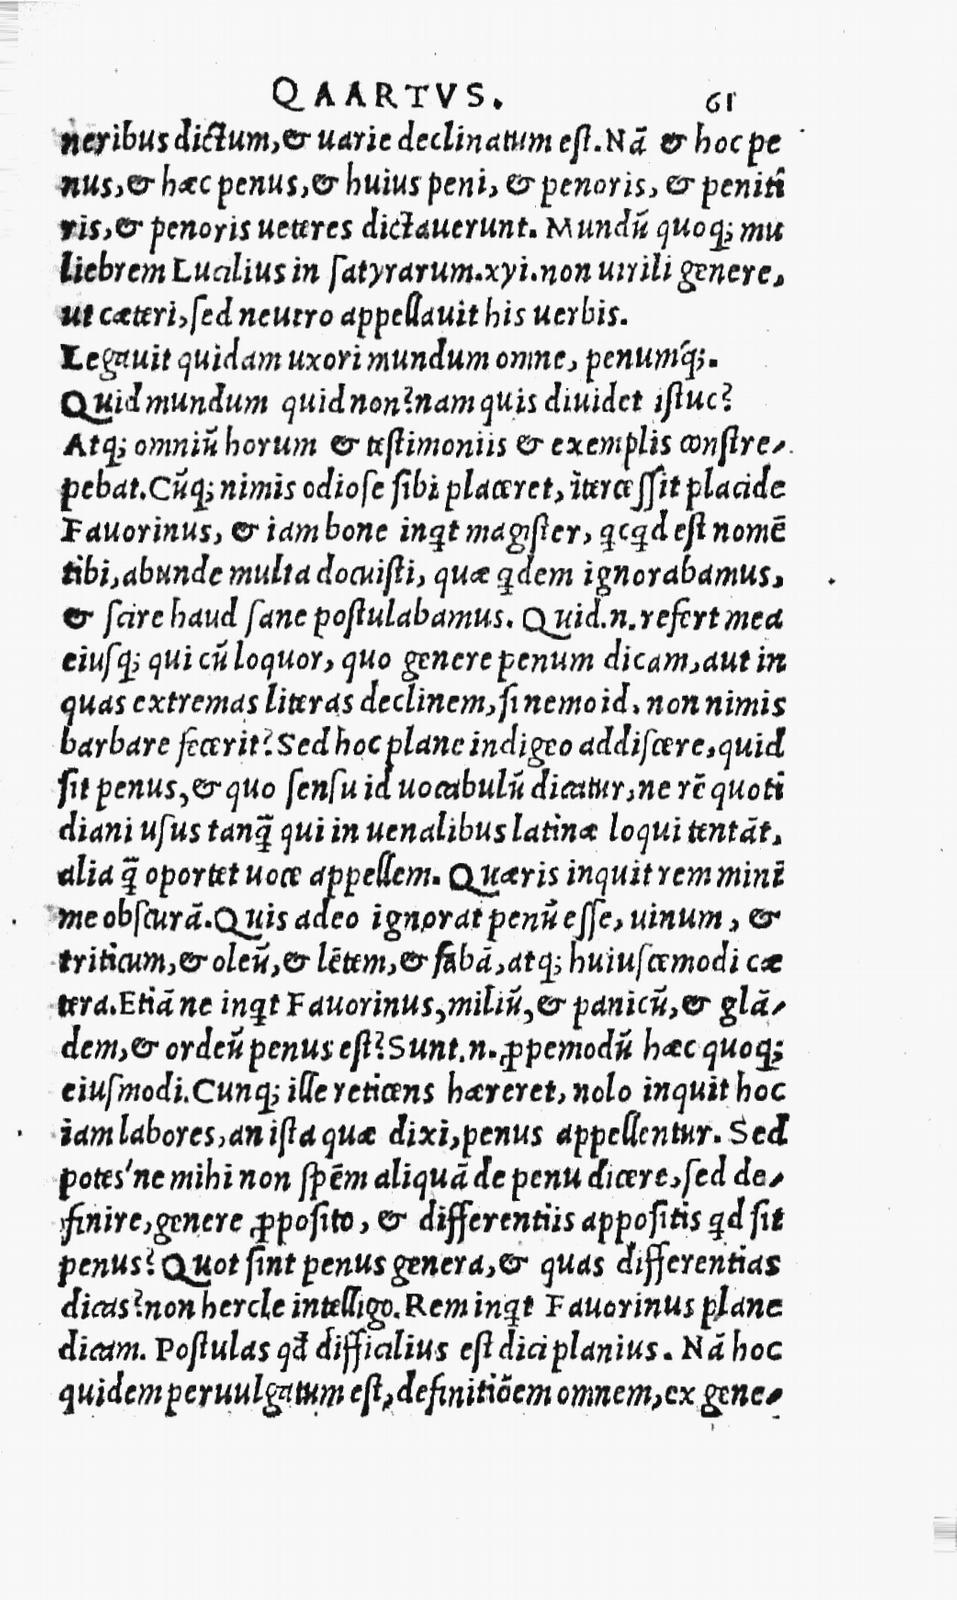 QAARTVS. 61
neribus dictum, & uarie declinatum est. Nā & hoc pe
nus, & hæc penus, & huius peni, & penoris, & penití
ris, & penoris ueteres dictauerunt. Mundũ quoq; mu
liebrem Lucilius in satyrarum. xyi. non uirili genere,
ut cæteri, sed neutro appellauit his uerbis.
Legauit quidam uxori mundum omne, penumq́;.
Quid mundum quid non? nam quis diuidet istuc?
Atq; omniũ horum & testimoniis & exemplis constre-
pebat. Cũq; nimis odiose sibi placeret, ĩtercessit placide
Fauorinus, & iam bone inqt magister, qcqd est nomē
tibi, abunde multa docuisti, quæ qdem ignorabamus,
& scire haud sane postulabamus. Quid.n.refert mea
eiusq; qui cũ loquor, quo genere penum dicam, aut in
quas extremas literas declinem, si nemo id, non nimis
barbare fecerit? Sed hoc plane indigeo addiscere, quid
sit penus, & quo sensu id uocabulũ dicatur, ne rē quoti
diani usus tanq̃ qui in uenalibus latinæ loqui tentāt,
alia q̃ oportet uoce appellem. Quæris inquit rem minĩ
me obscurā. Quis adeo ignorat penũ esse, uinum, &
triticum, & oleũ, & lētem, & fabā, atq; huiuscemodi cæ
tera. Etiā ne inqt Fauorinus, miliũ, & panicũ, & glā-
dem, & ordeũ penus est? Sunt.n. ꝓpemodũ hæc quoq;
eiusmodi. Cunq; ille reticens hæreret, nolo inquit hoc
iam labores, an ista quæ dixi, penus appellentur. Sed
potes'ne mihi non spēm aliquā de penu dicere, sed de-
finire, genere ꝓposito, & differentiis appositis qd sit
penus? Quot sint penus genera, & quas differentias
dicas? non hercle intelligo. Rem inqt Fauorinus plane
dicam. Postulas qđ difficilius est dici planius. Nā hoc
quidem peruulgatum est, definitiōem omnem, ex gene-